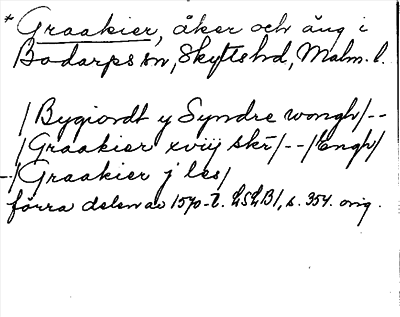 * Graakier, åker och äng i
Bodarps sn, Skytts hd, Malm. l.
/Bygiordt y Syndre wongh/--
/Graakier xviij skr̄/--/Engh/
--/Graakier j les/
förra delen av 1570-t. LSLB/, s. 354. orig.